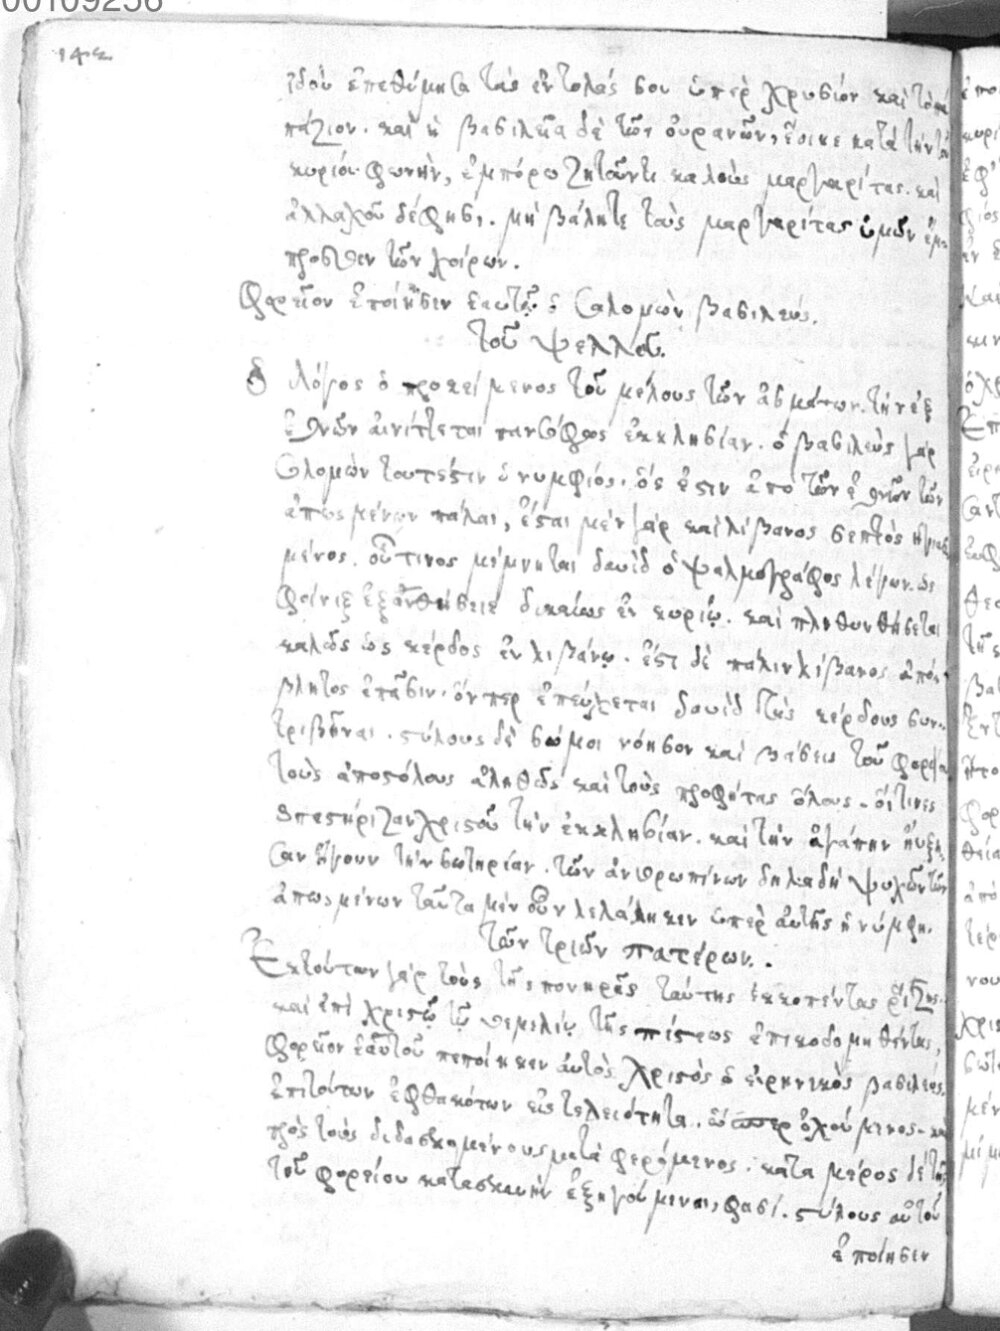 00109256
ἰδοὺ ἐπεθύμησα τὰς ἐντολάς σου ὑπὲρ χρυσίον καὶ τοπά
πάζιον. καὶ ἡ βασιλεία δὲ τῶν οὐρανῶν, ἔοικε κατὰ τὴν τοῦ
κυρίου φωνὴν, ἐμπόρω ζητοῦντι καλοὺς μαργαρίτας. καὶ
ἀλλαχοῦ δέ φησι, μὴ βάλητε τοὺς μαργαρίτας ὑμῶν ἔμ
προσθεν τῶν χοίρων.
Φορεῖον ἐποίησεν ἑαυτῷ ὁ Σαλομὼν βασιλεύς.
τοῦ ψελλοῦ.
ὁ λόγος ὁ προκείμενος τοῦ μέλους τῶν ἀσμάτων. τὴν ἐξ
ἐθνῶν αἰνίττεται πανσόφως ἐκκλησίαν. ὁ βασιλεὺς γὰρ
Σολομὼν τουτέστιν ὁ νυμφίος. ὅς ἐστιν ἀπὸ τῶν ἐθνῶν τῶν
ἀπωσμένων πάλαι, ἔσται μὲν γὰρ καὶ λίβανος σεπτὸς ἡγιασ
μένος. οὗτινος μέμνηται δαυὶδ ὁ ψαλμογράφος λέγων. ὡς
φοίνιξ ἐξανθήσειε δικαίως ἐν κυρίῳ. καὶ πληθυνθήσεται
καλῶς ὡς κέρδος ἐν λιβάνῳ. ἔστι δὲ πάλιν λίβανος ἀπό
βλητος ἐπᾶσιν. ὅνπερ ἐπεύχεται δαυὶδ τῆς κέρδους συν
τριβῆναι. στύλους δὲ σώμοι νόησον καὶ βάσεις τοῦ φορείου
τοὺς ἀποστόλους ἀληθῶς καὶ τοὺς προφήτας ὅλους. οἵτινες
ἐπεστήριζαν χριστοῦ τὴν ἐκκλησίαν. καὶ τὴν ἀγάπην ηὔξη
σαν ἤγουν τὴν σωτηρίαν. τῶν ἀνθρωπίνων δηλαδὴ ψυχῶν τῶν
ἀπωσμένων ταῦτα μὲν οὖν λελάληκεν ὑπὲρ αὐτῆς ἡ νύμφη.
τῶν τριῶν πατέρων.
Ἐκ τούτων γὰρ τοὺς τῆς πονηρᾶς ταύτης ἐκκοπέντας ῥίζης.
καὶ ἐπὶ χριστῷ τῷ θεμελίῳ τῆς πίστεως ἐποικοδομηθέντας,
φορεῖον ἑαυτοῦ πεποίηκεν αὐτὸς χριστὸς ὁ εἰρηνικὸς βασιλεύς.
ἐπὶ τούτων ἐφθακότων εἰς τελειότητα. ὥσπερ ὀχούμενος. καὶ
πρὸς τοὺς διδασκομένους μεταφερόμενος. κατὰ μέρος δὲ τὴν
τοῦ φορείου κατασκευὴν ἐξηγούμενοι, φασί. στύλους αὐτοῦ
ἐποίησεν